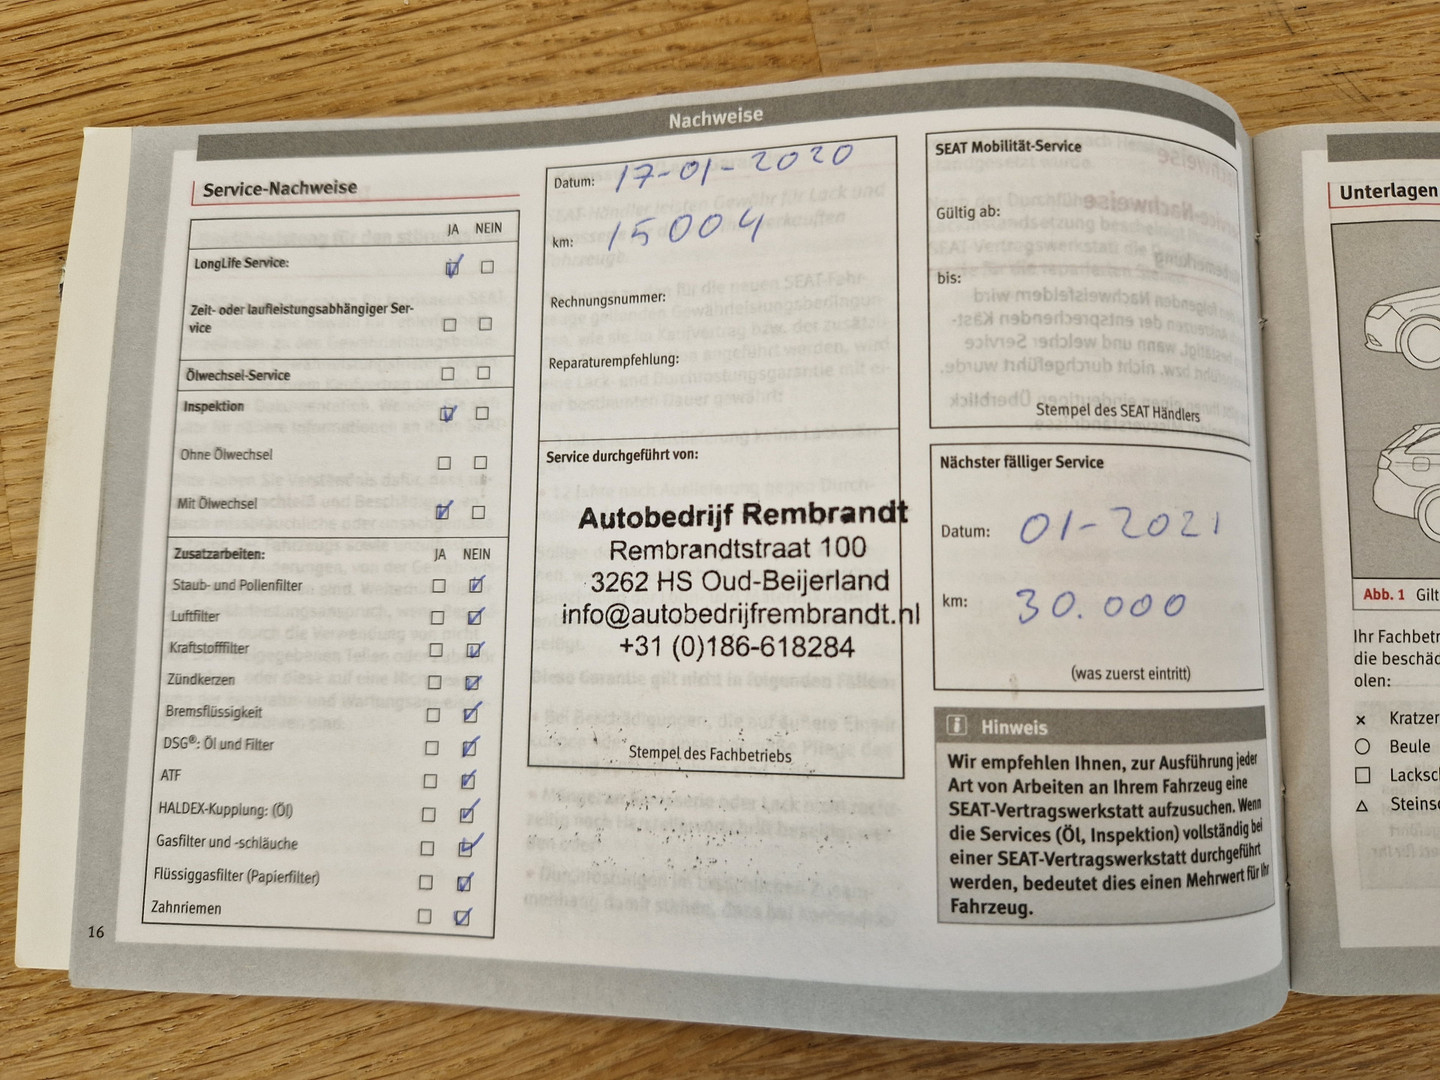 Nachweise
Service-Nachweise
JA NEIN
LongLife Service:
Zeit- oder laufleistungsabhängiger Ser-
vice
Ölwechsel-Service
Inspektion
Ohne Ölwechsel
Mit Ölwechsel
Zusatzarbeiten: JA NEIN
Staub- und Pollenfilter
Luftfilter
Kraftstofffilter
Zündkerzen
Bremsflüssigkeit
DSG®: Öl und Filter
ATF
HALDEX-Kupplung: (Öl)
Gasfilter und -schläuche
Flüssiggasfilter (Papierfilter)
Zahnriemen
16
Datum: 17-01-2020
km: 15004
Rechnungsnummer:
Reparaturempfehlung:
Service durchgeführt von:
Autobedrijf Rembrandt
Rembrandtstraat 100
3262 HS Oud-Beijerland
info@autobedrijfrembrandt.nl
+31 (0)186-618284
Stempel des Fachbetriebs
SEAT Mobilität-Service
Gültig ab:
bis:
Stempel des SEAT Händlers
Nächster fälliger Service
Datum: 01-2021
km: 30.000
(was zuerst eintritt)
i Hinweis
Wir empfehlen Ihnen, zur Ausführung jeder
Art von Arbeiten an Ihrem Fahrzeug eine
SEAT-Vertragswerkstatt aufzusuchen. Wenn
die Services (Öl, Inspektion) vollständig bei
einer SEAT-Vertragswerkstatt durchgeführt
werden, bedeutet dies einen Mehrwert für Ihr
Fahrzeug.
Unterlagen
Abb. 1 Gilt
Ihr Fachbetr
die beschäd
olen:
Kratzer
Beule
Lacksch
Steinsc